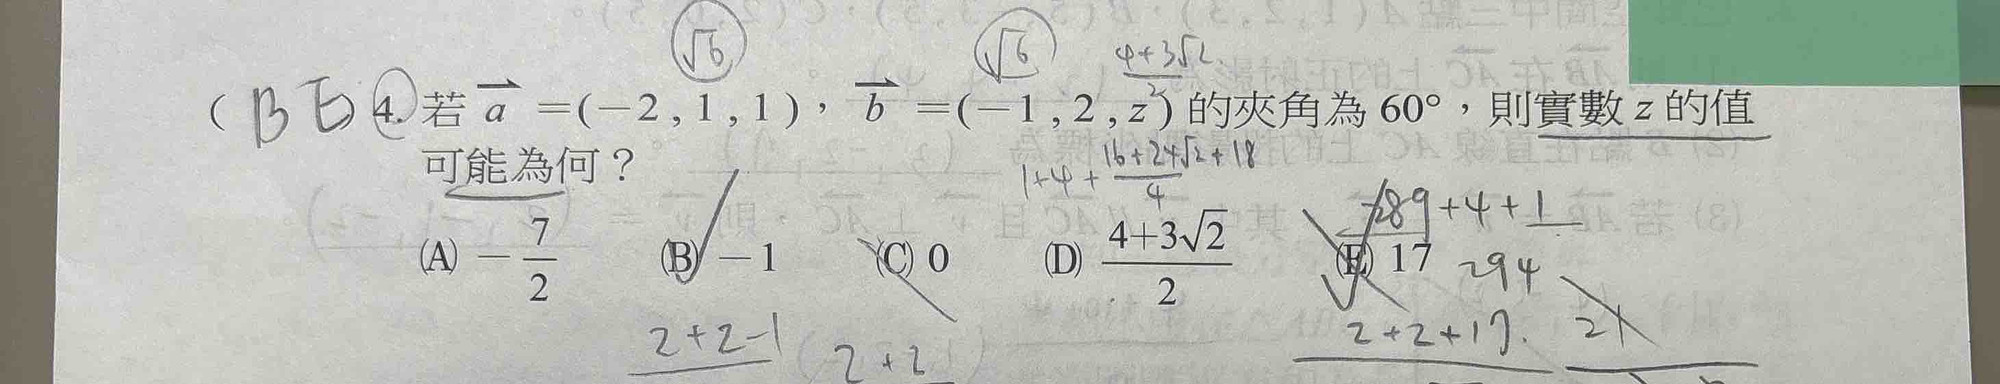 √6 √6 4+3√2
( B E ) 4. 若 a =(−2 , 1 , 1)，b =(−1 , 2 , z) 的夾角為 60°，則實數 z 的值 2
可能為何？ 1+4+ 16+24√2+18 / 4
289+4+1
(A) −7/2 (B) −1 (C) 0 (D) (4+3√2)/2 (E) 17 294
2+2-1 2+2 2+2+17 21